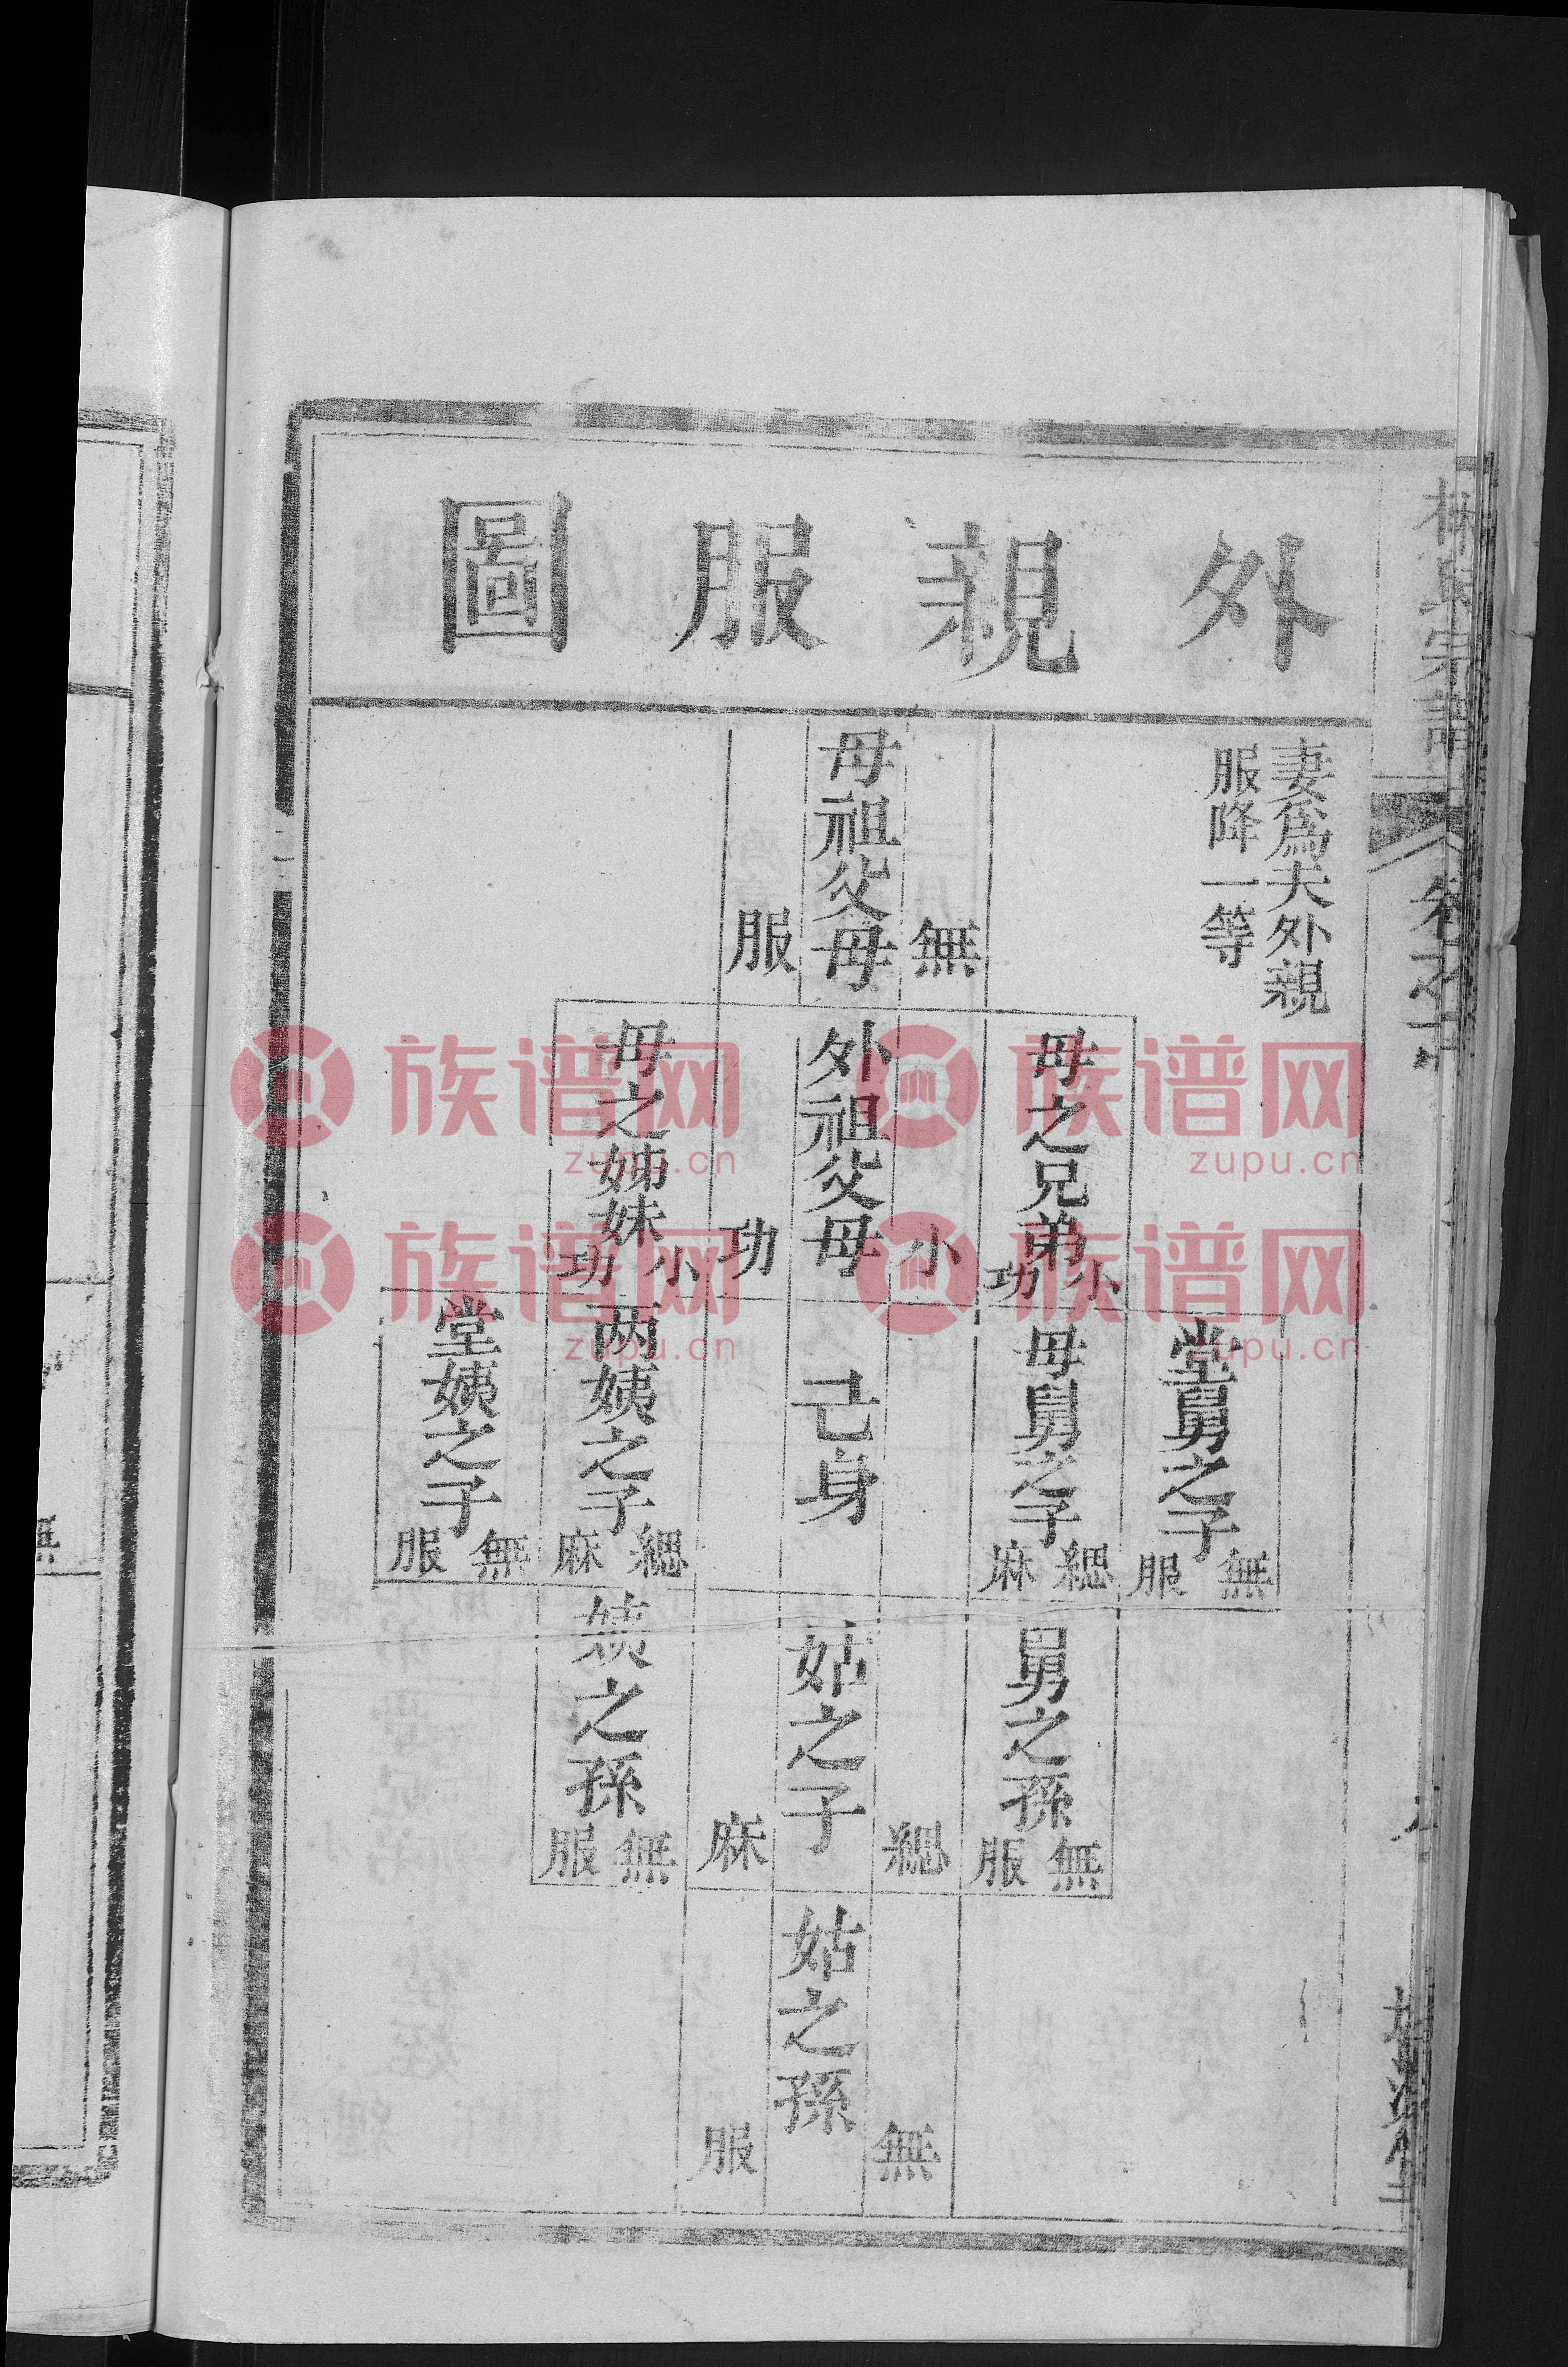 外親服圖
妻爲夫外親
服降一等
母祖父母
無服
母之兄弟
小功
外祖父母
小功
母之姊妹
小功
堂舅之子
無服
母舅之子
緦麻
己身
两姨之子
緦麻
堂姨之子
無服
舅之孫
無服
姑之子
緦麻
姨之孫
無服
姑之孫
無服
宗譜
卷之
無
族谱网
zupu.cn
族谱网
zupu.cn
族谱网
zupu.cn
族谱网
zupu.cn